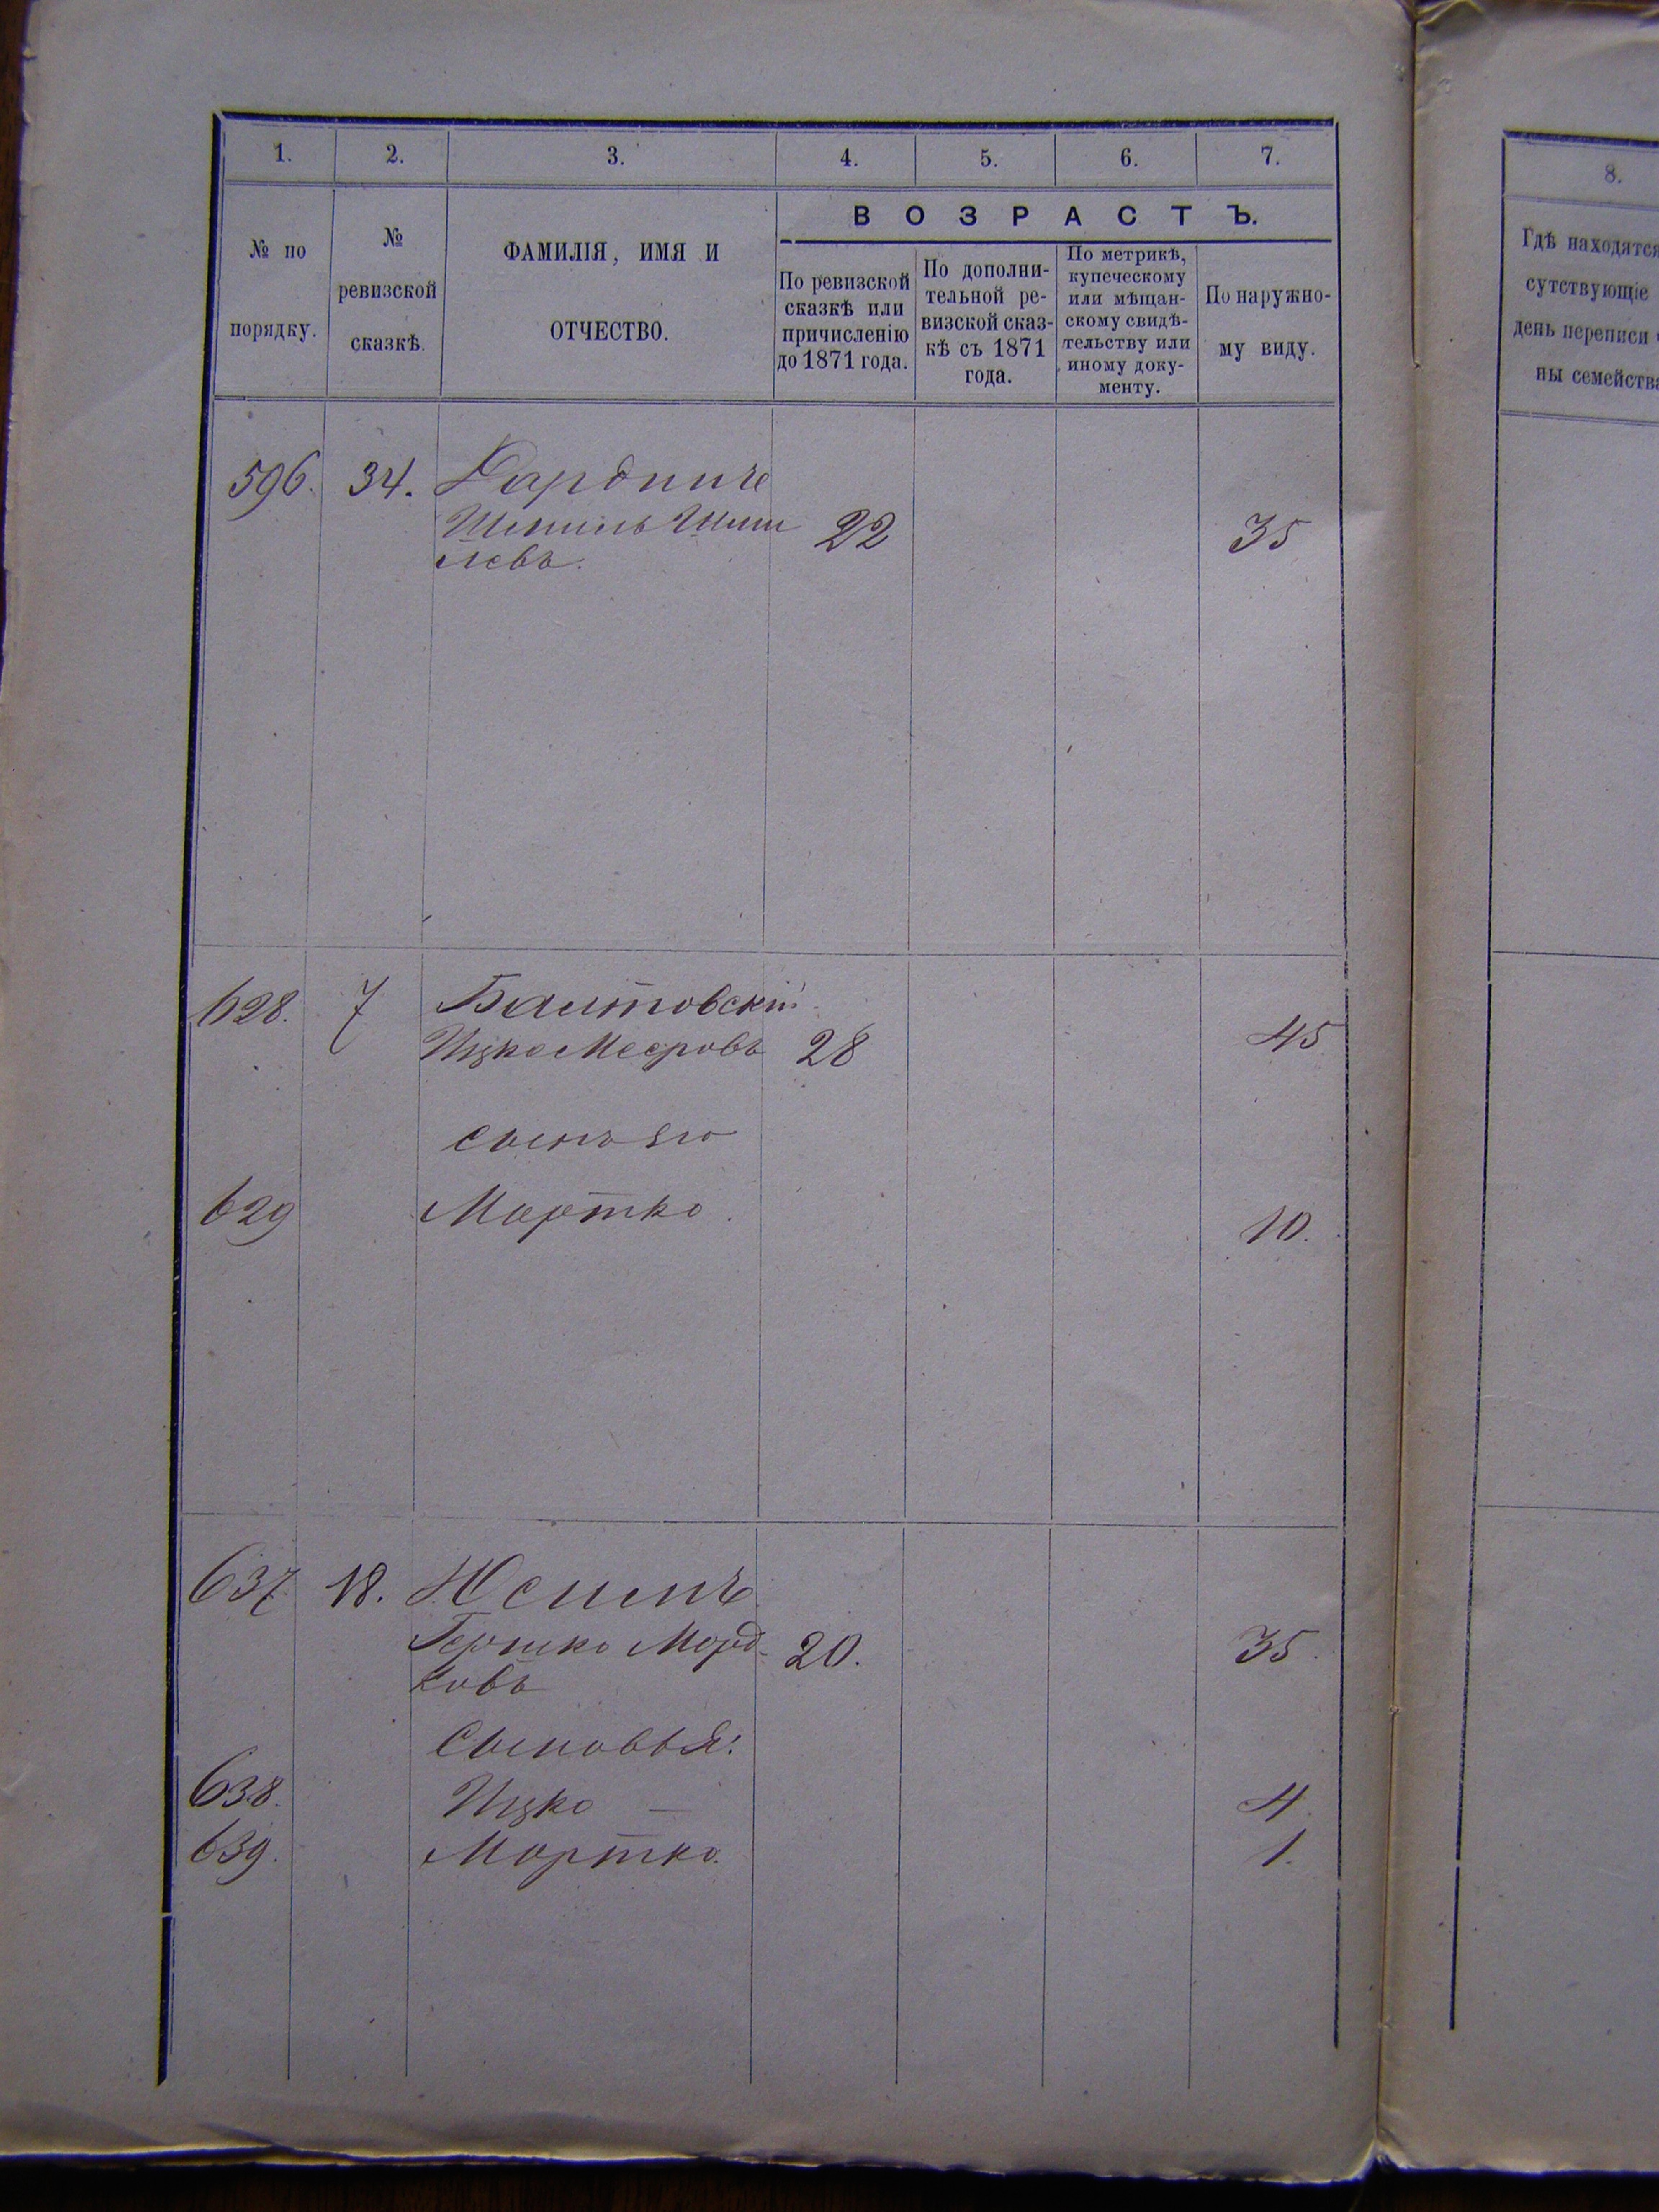 1. 2. 3. 4. 5. 6. 7.
№ по порядку.
№ ревизской сказкѣ.
ФАМИЛІЯ, ИМЯ И ОТЧЕСТВО.
ВОЗРАСТЪ.
По ревизской сказкѣ или причисленію до 1871 года.
По дополни-
тельной ре-
визской сказ-
кѣ съ 1871
года.
По метрикѣ,
купеческому
или мѣщан-
скому свидѣ-
тельству или
иному доку-
менту.
По наружно-
му виду.
596. 34.
22 35
левъ.
628. 7
Ицко Мееровъ 28 45
сынъ его
629 Мортко. 10.
637 18.
Гершко Морд- 20. 35.
ковъ
Сыновья:
638. Ицко — 4.
639. Мортко. 1.
8.
Гдѣ находятся
сутствующіе
день переписи
ны семейства